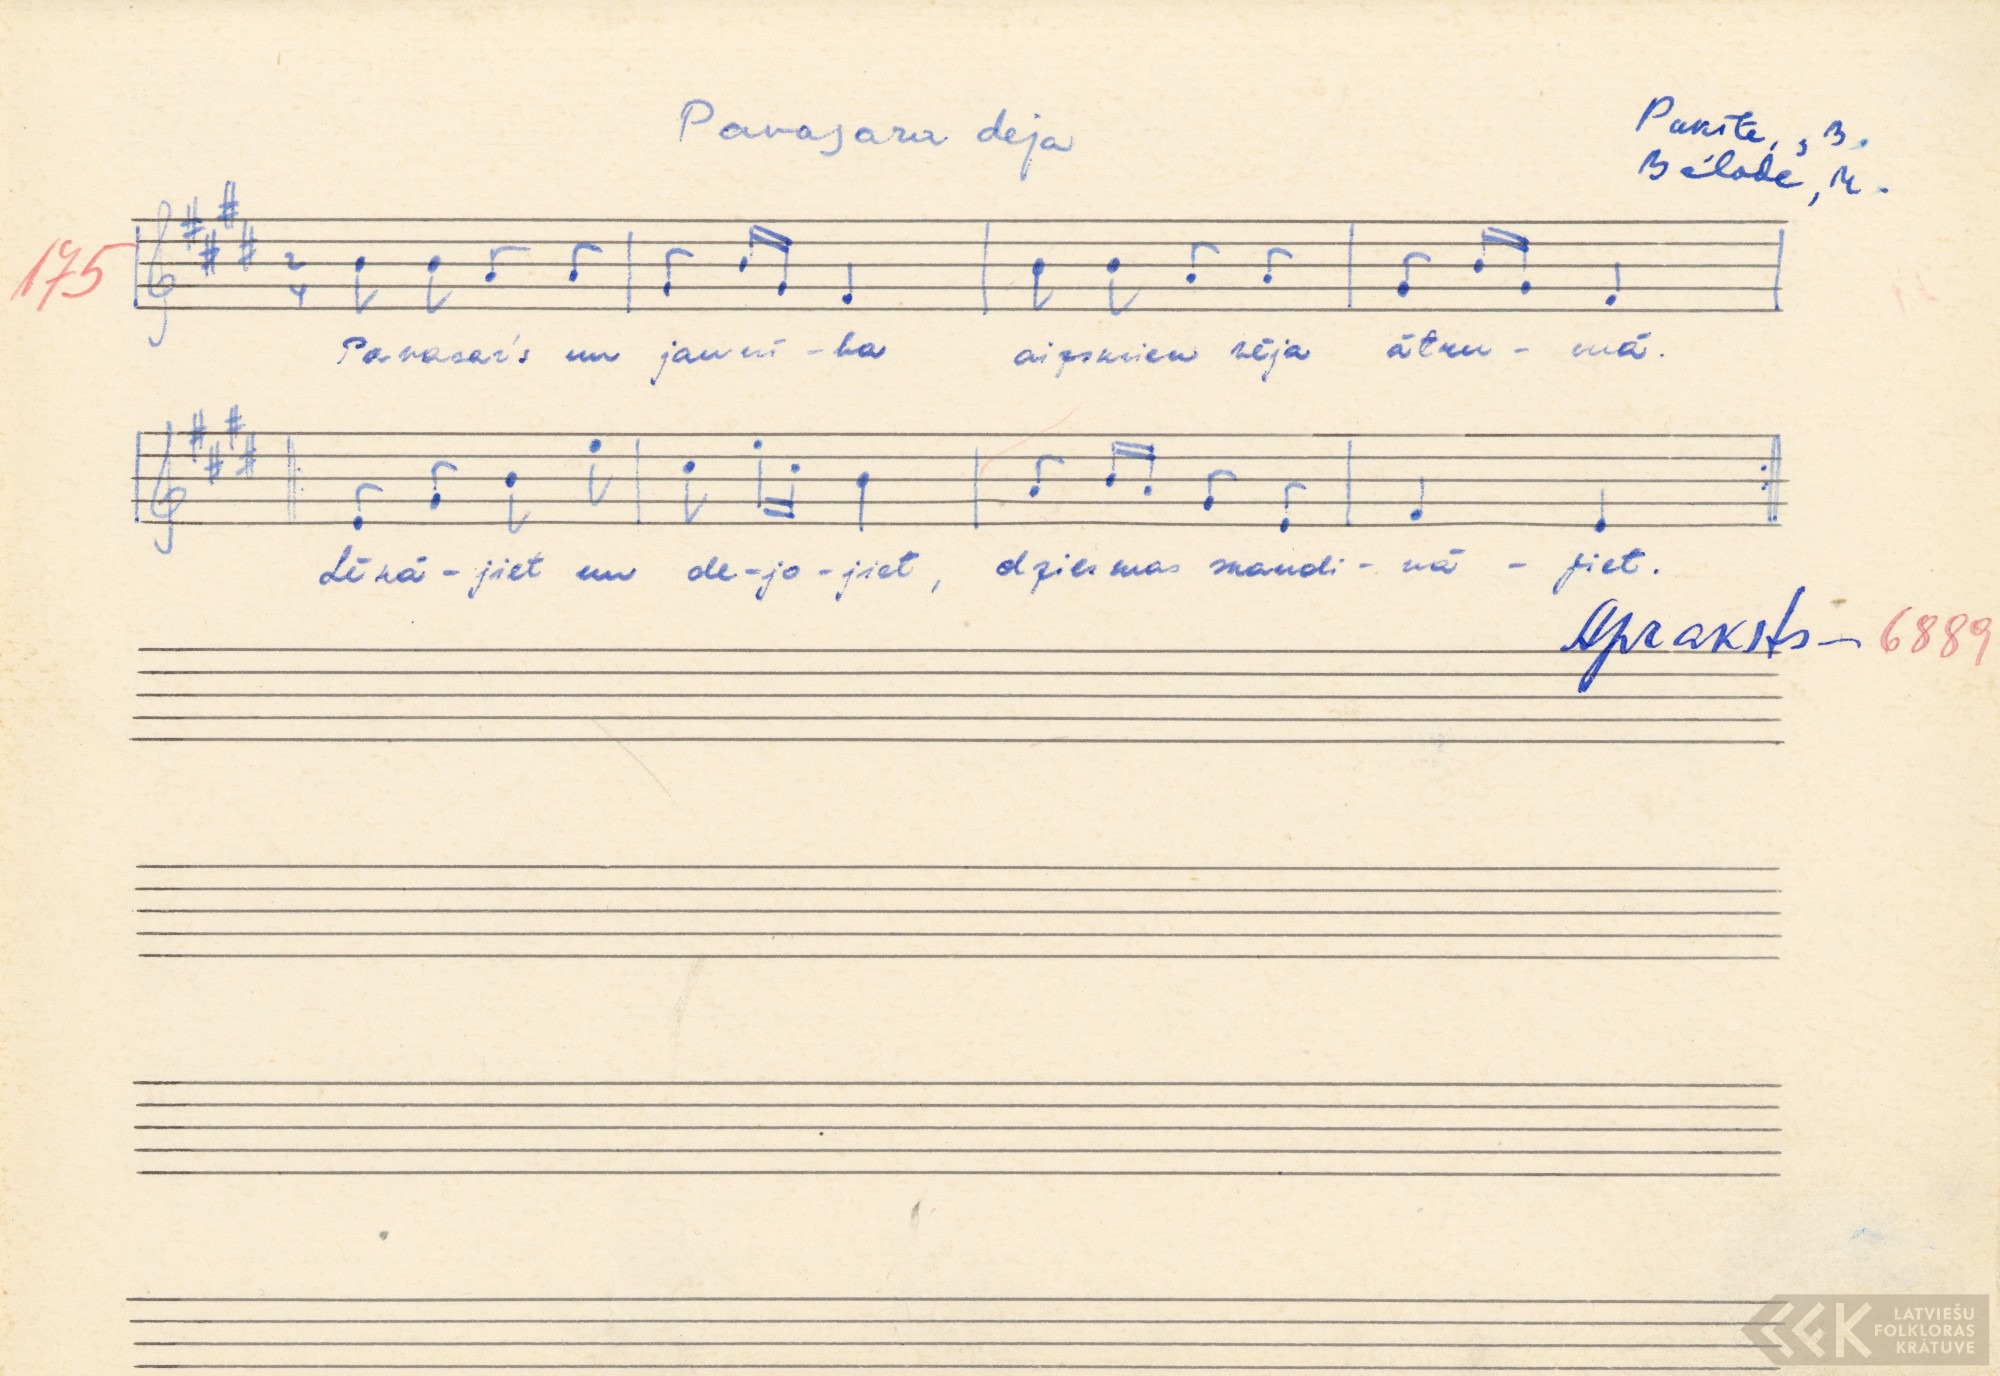 Pavasara deja
Pukīte, B.
Bēlade, M.
175
2
4
Pavasar's un jaunī-ba aizskrien vēja ātru-mā.
Lēkā-jiet un de-jo-jiet, dziesmas skandi-nā-jiet.
Apraksts – 6889
LFK LATVIEŠU
FOLKLORAS
KRĀTUVE